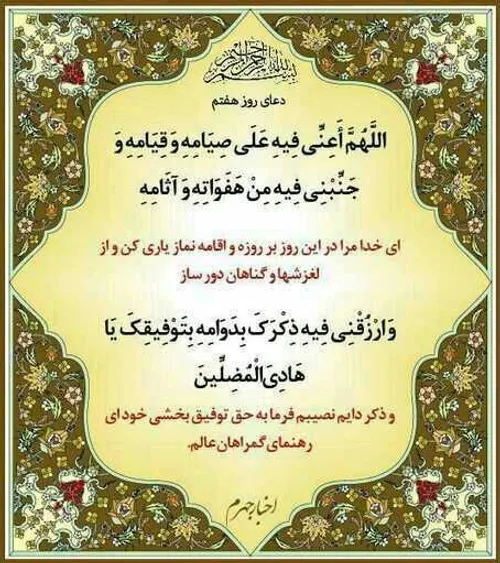 بسم الله الرحمن الرحیم
دعای روز هفتم
اللَّهُمَّ أَعِنِّی فِیهِ عَلَی صِیَامِهِ وَ قِیَامِهِ وَ
جَنِّبْنِی فِیهِ مِنْ هَفَوَاتِهِ وَ آثَامِهِ
ای خدا مرا در این روز بر روزه و اقامه نماز یاری کن و از
لغزشها و گناهان دور ساز
وَ ارْزُقْنِی فِیهِ ذِکْرَکَ بِدَوَامِهِ بِتَوْفِیقِکَ یَا
هَادِیَ الْمُضِلِّینَ
و ذکر دایم نصیبم فرما به حق توفیق بخشی خود ای
رهنمای گمراهان عالم.
اخبار جهرم